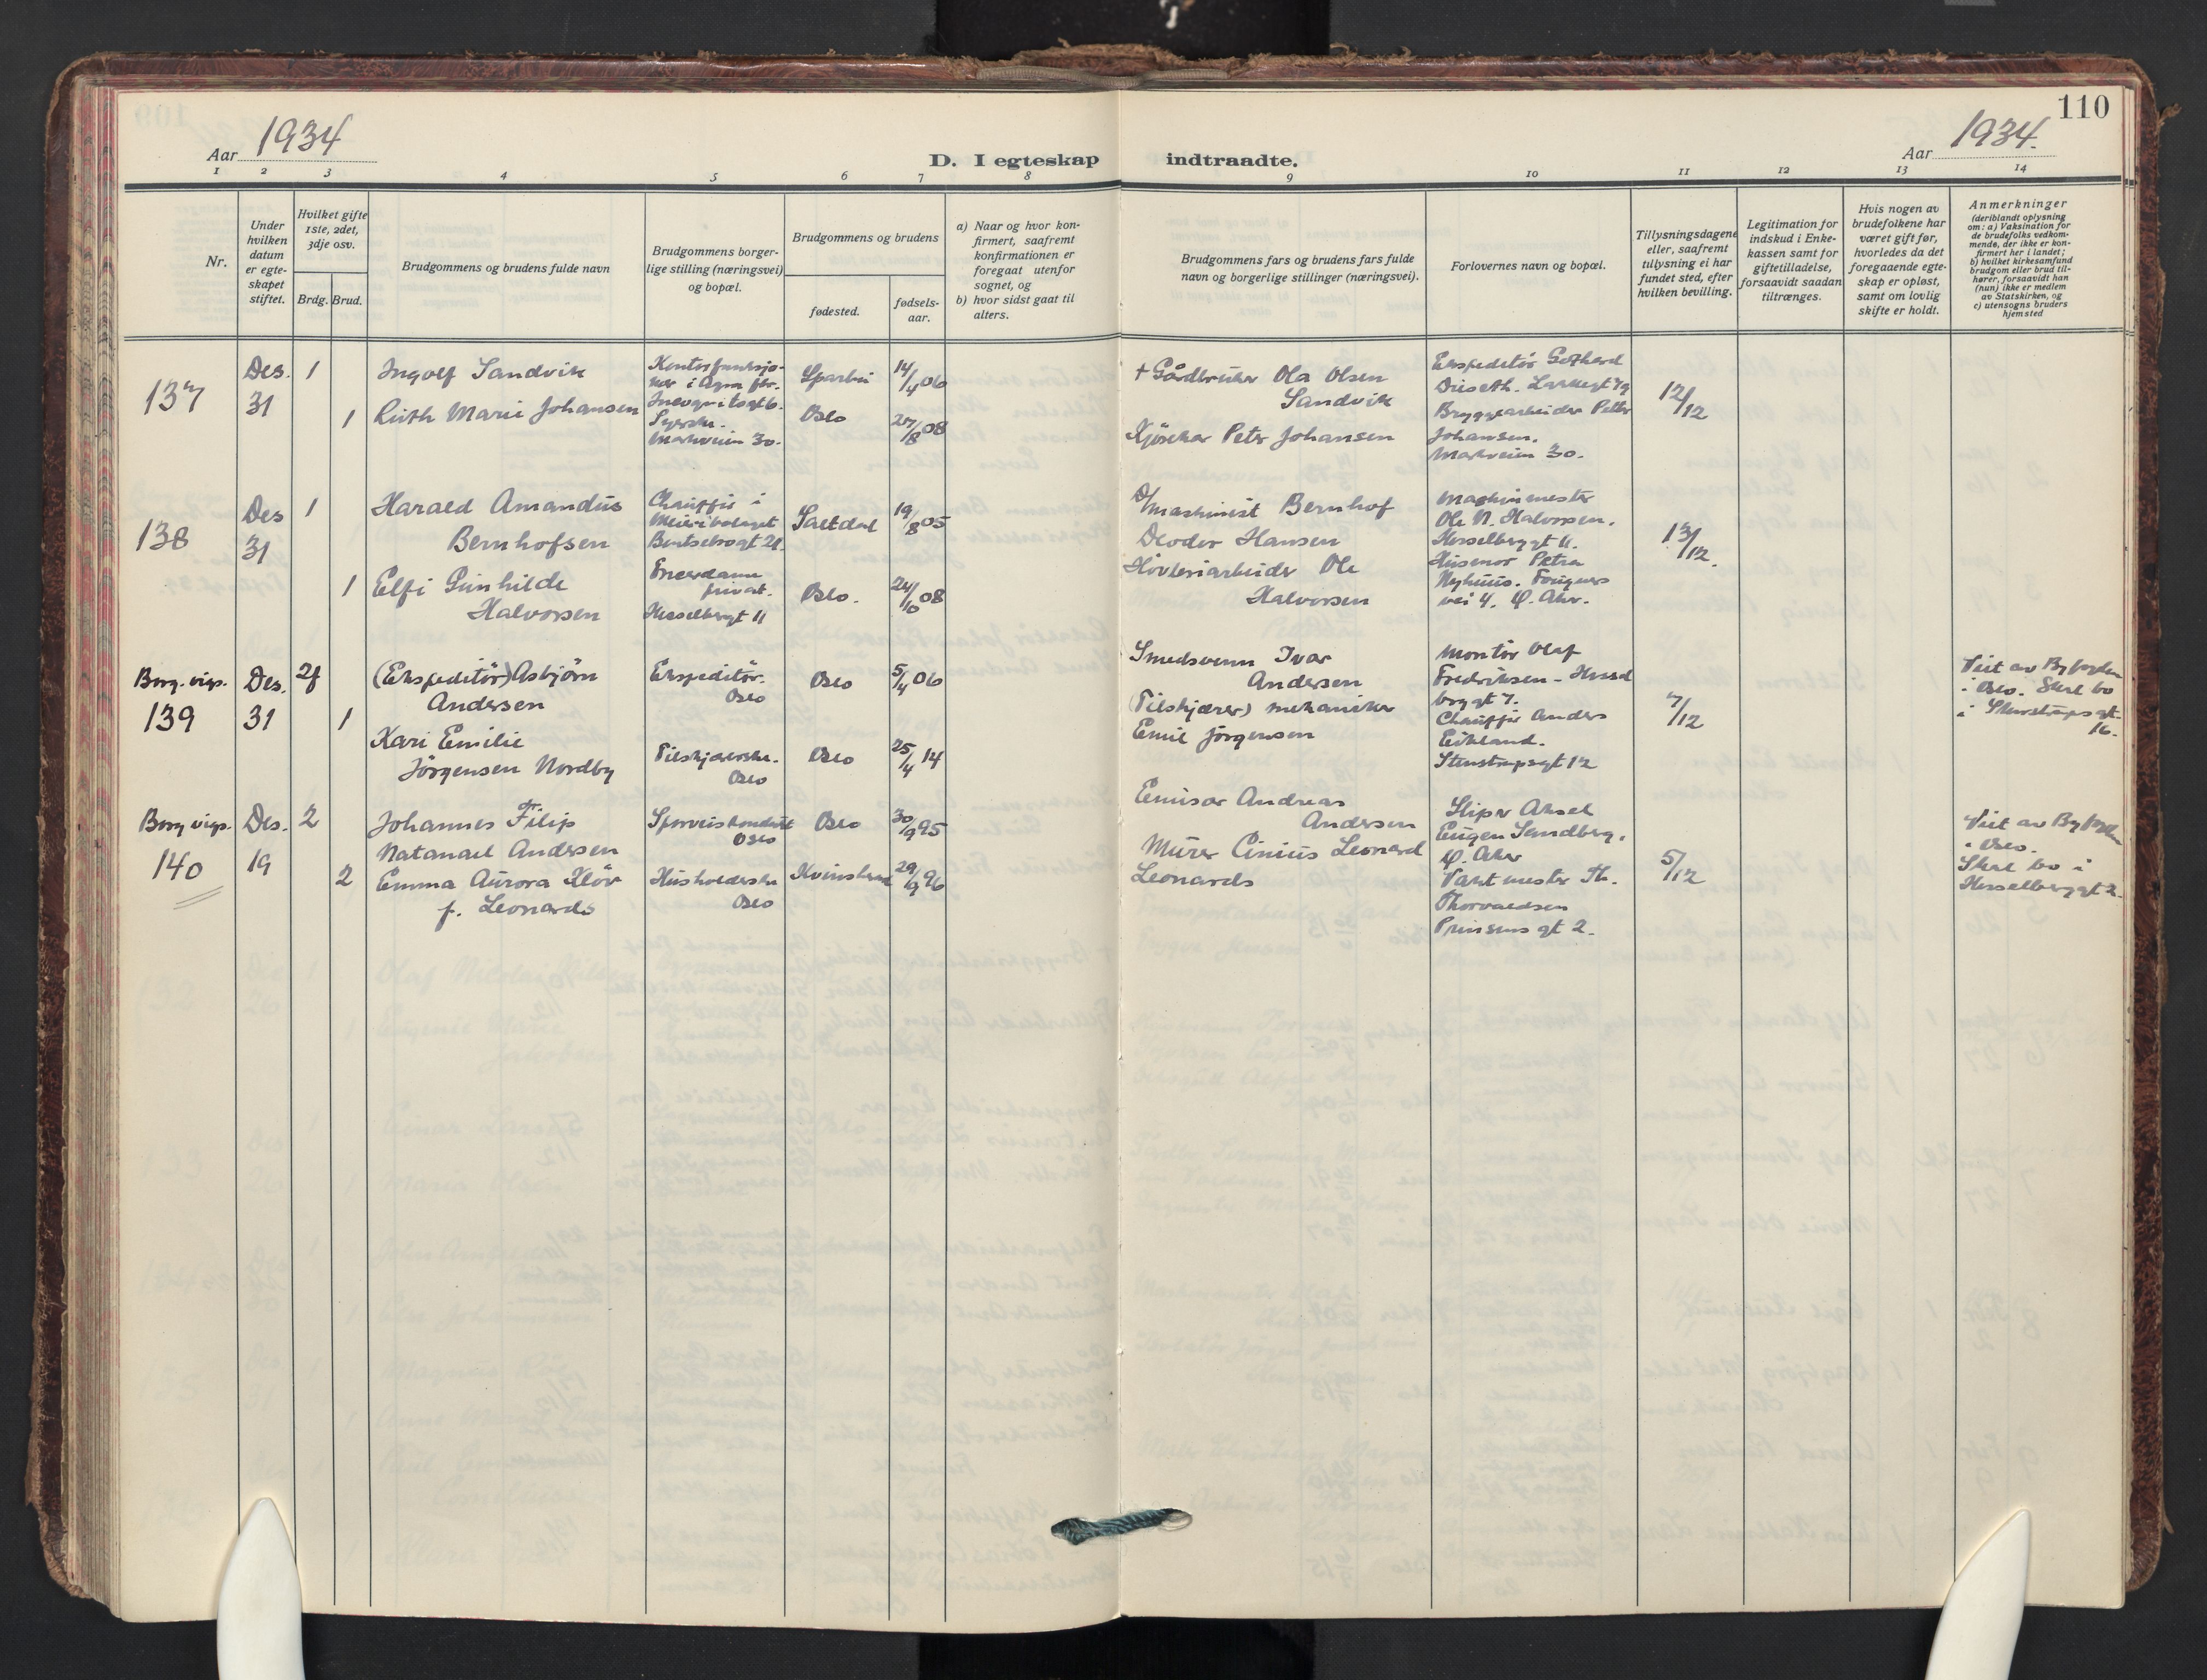 110
Aar 1934
Aar 1934.
D. I egteskap indtraadte.
1 2 3 4 5 6 7 8 9 10 11 12 13 14
Nr.
Under hvilken datum er egte-skapet stiftet.
Hvilket gifte 1ste, 2det, 3dje osv.
Brdg. Brud.
Brudgommens og brudens fulde navn
Brudgommens borger-
lige stilling (næringsvei)
og bopæl.
Brudgommens og brudens
fødested.
fødsels-
aar.
a) Naar og hvor kon-
firmert, saafremt
konfirmationen er
foregaat utenfor
sognet, og
b) hvor sidst gaat til
alters.
Brudgommens fars og brudens fars fulde
navn og borgerlige stillinger (næringsvei).
Forlovernes navn og bopæl.
Tillysningsdagene
eller, saafremt
tillysning ei har
fundet sted, efter
hvilken bevilling.
Legitimation for
indskud i Enke-
kassen samt for
giftetilladelse,
forsaavidt saadan
tiltrænges.
Hvis nogen av
brudefolkene har
været gift før,
hvorledes da det
foregaaende egte-
skap er opløst,
samt om lovlig
skifte er holdt.
Anmerkninger
(deriblandt oplysning
om: a) Vaksination for
de brudefolks vedkom-
mende, der ikke er kon-
firmert her i landet;
b) hvilket kirkesamfund
brudgom eller brud til-
hører, forsaavidt han
(hun) ikke er medlem
av Statskirken, og
c) utensogns bruders
hjemsted
137
Des. 31
1
1
Ingolf Sandvik
Ruth Marie Johansen
Kontorfunksjo-
nær i
Syerske.
Markveien 30.
Sparbu
Oslo
14/4 06
27/8 08
+ Gårdbruker Ola Olsen
Sandvik
Kjørekar Peter Johansen
Ekspeditør Gothard
Bryggearbeider Petter
Johansen.
Markveien 30.
12/12
138
Des 31
1
1
Harald Amandus
Bernhofsen
Elfi Gunhilde
Halvorsen
Chauffør i
Meieribolaget
Bentsebrogt 21.
privat.
Hesselbergt 11
Saltdal
Oslo.
19/8 05
24/10 08
D/ maskinist Bernhof
Deodor Hansen
Høvleriarbeider Ole
Halvorsen
Maskinmester
Ole N. Halvorsen.
Hesselberggt 11.
Husmor Petra
Nyhuus. Fougners
vei 4. Ø. Aker.
13/12.
Borg. vigs.
139
Des. 31
2f
1
(Ekspeditør) Asbjørn
Andersen
Kari Emilie
Jørgensen Nordby
Ekspeditør.
Oslo
Tilskjærerske.
Oslo
Oslo
Oslo
5/4 06
25/4 14
Smedsvenn Ivar
Andersen
(Tilskjærer) mekaniker
Emil Jørgensen
Montør Olaf
Fredriksen - Hessel
berggt 7.
Chauffør Anders
Eikland.
Stenstrupsgt 12
7/12
Viet av Byfogden
i Oslo. Skal bo
i Stenstrupsgt.
16.
Borg vigs.
140
Des. 19
2
2
Johannes Filip
Natanael Andersen
Emma Aurora Kløv
f. Leonards
Sporveiskonduktør
Oslo
Husholderske
Oslo
Oslo
30/9 95
29/9 96
Emisær Andreas
Andersen
Murer Cinius Leonard
Leonards
Sliper Aksel
Eugen Sundberg.
Ø. Aker
Vaktmester Th.
Thorvaldsen
Prinsens gt 2.
5/12
Viet av Byfogden
i Oslo.
Skal bo i
Hesselberggt 2.